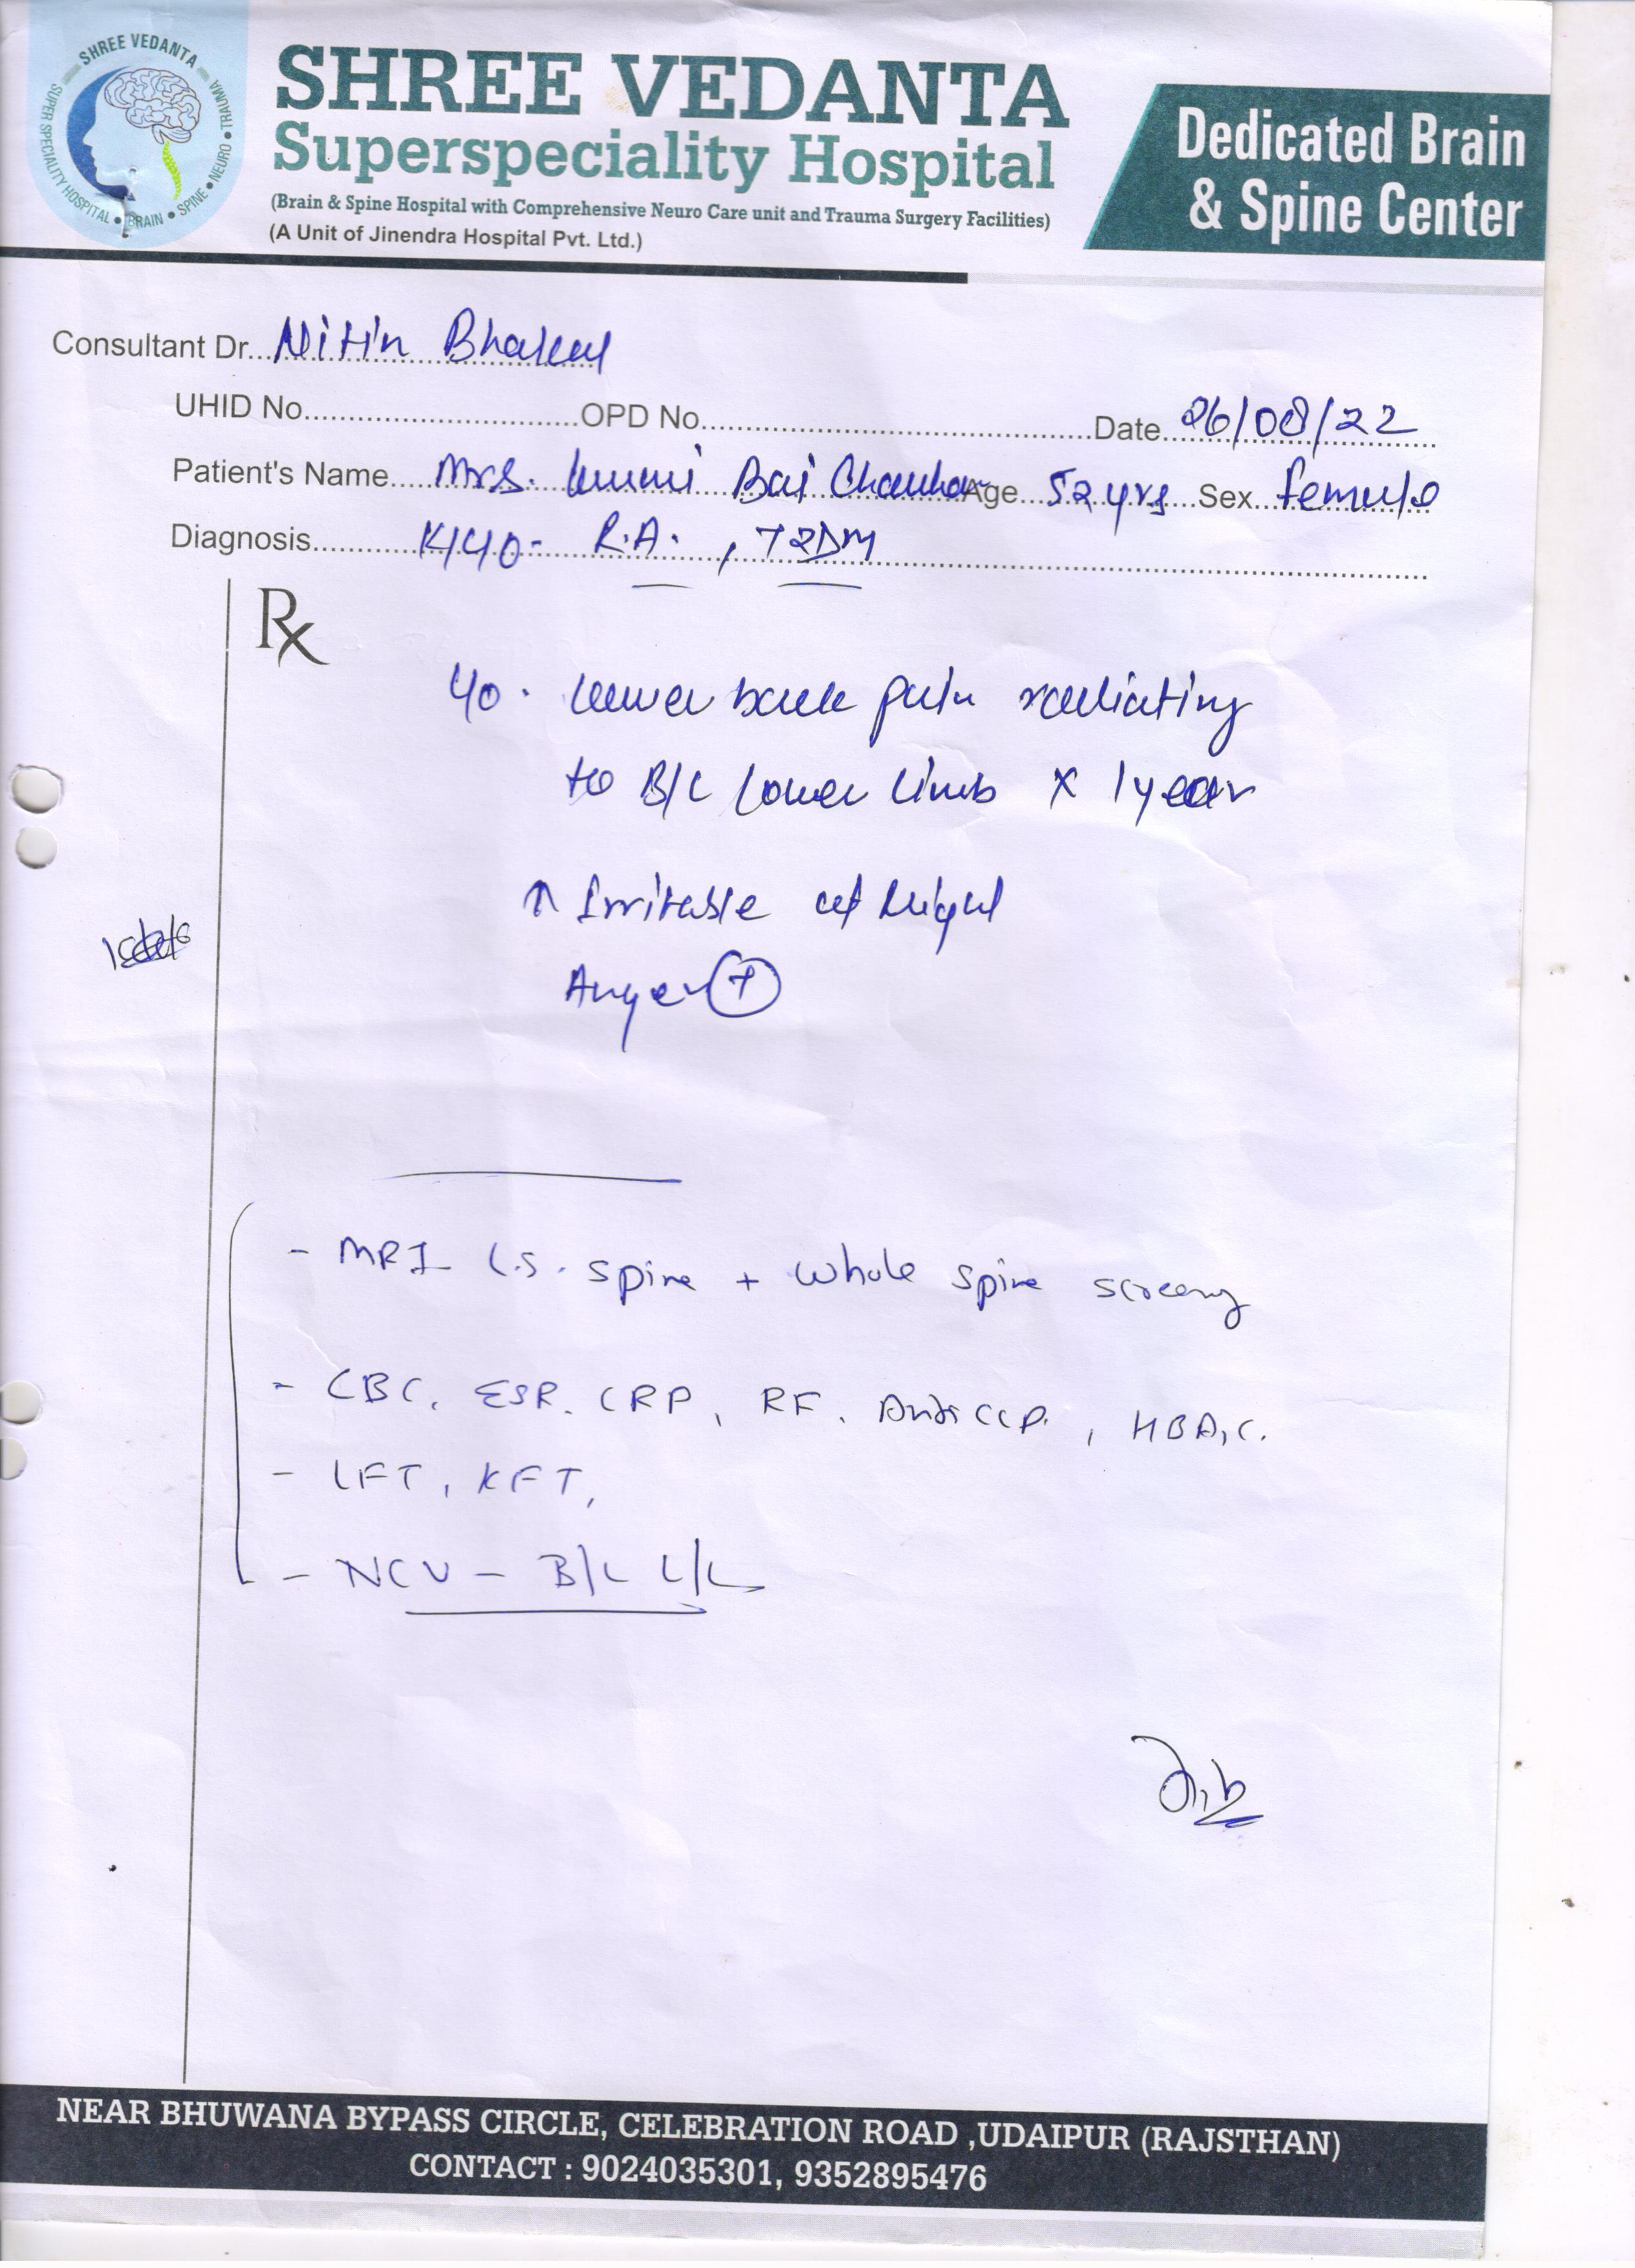 SHREE VEDANTA
SUPER SPECIALITY HOSPITAL • BRAIN • SPINE • NEURO • TRAUMA
SHREE VEDANTA
Superspeciality Hospital
(Brain & Spine Hospital with Comprehensive Neuro Care unit and Trauma Surgery Facilities)
(A Unit of Jinendra Hospital Pvt. Ltd.)
Dedicated Brain
& Spine Center
Consultant Dr. Nitin
UHID No. OPD No. Date 26/08/22
Patient's Name Mrs. Bai Chauhan Age 52 yrs Sex Female
Diagnosis R.A., T2DM
Rx
lower back pain radiating
to B/L lower limb x 1 year
↑ Irritable at night
Anger +
- MRI L.S. spine + whole spine
- CBC, ESR, CRP, RF, Anti CCP, HBA1C.
- LFT, KFT,
- NCV - B/L L/L
NEAR BHUWANA BYPASS CIRCLE, CELEBRATION ROAD ,UDAIPUR (RAJSTHAN)
CONTACT : 9024035301, 9352895476